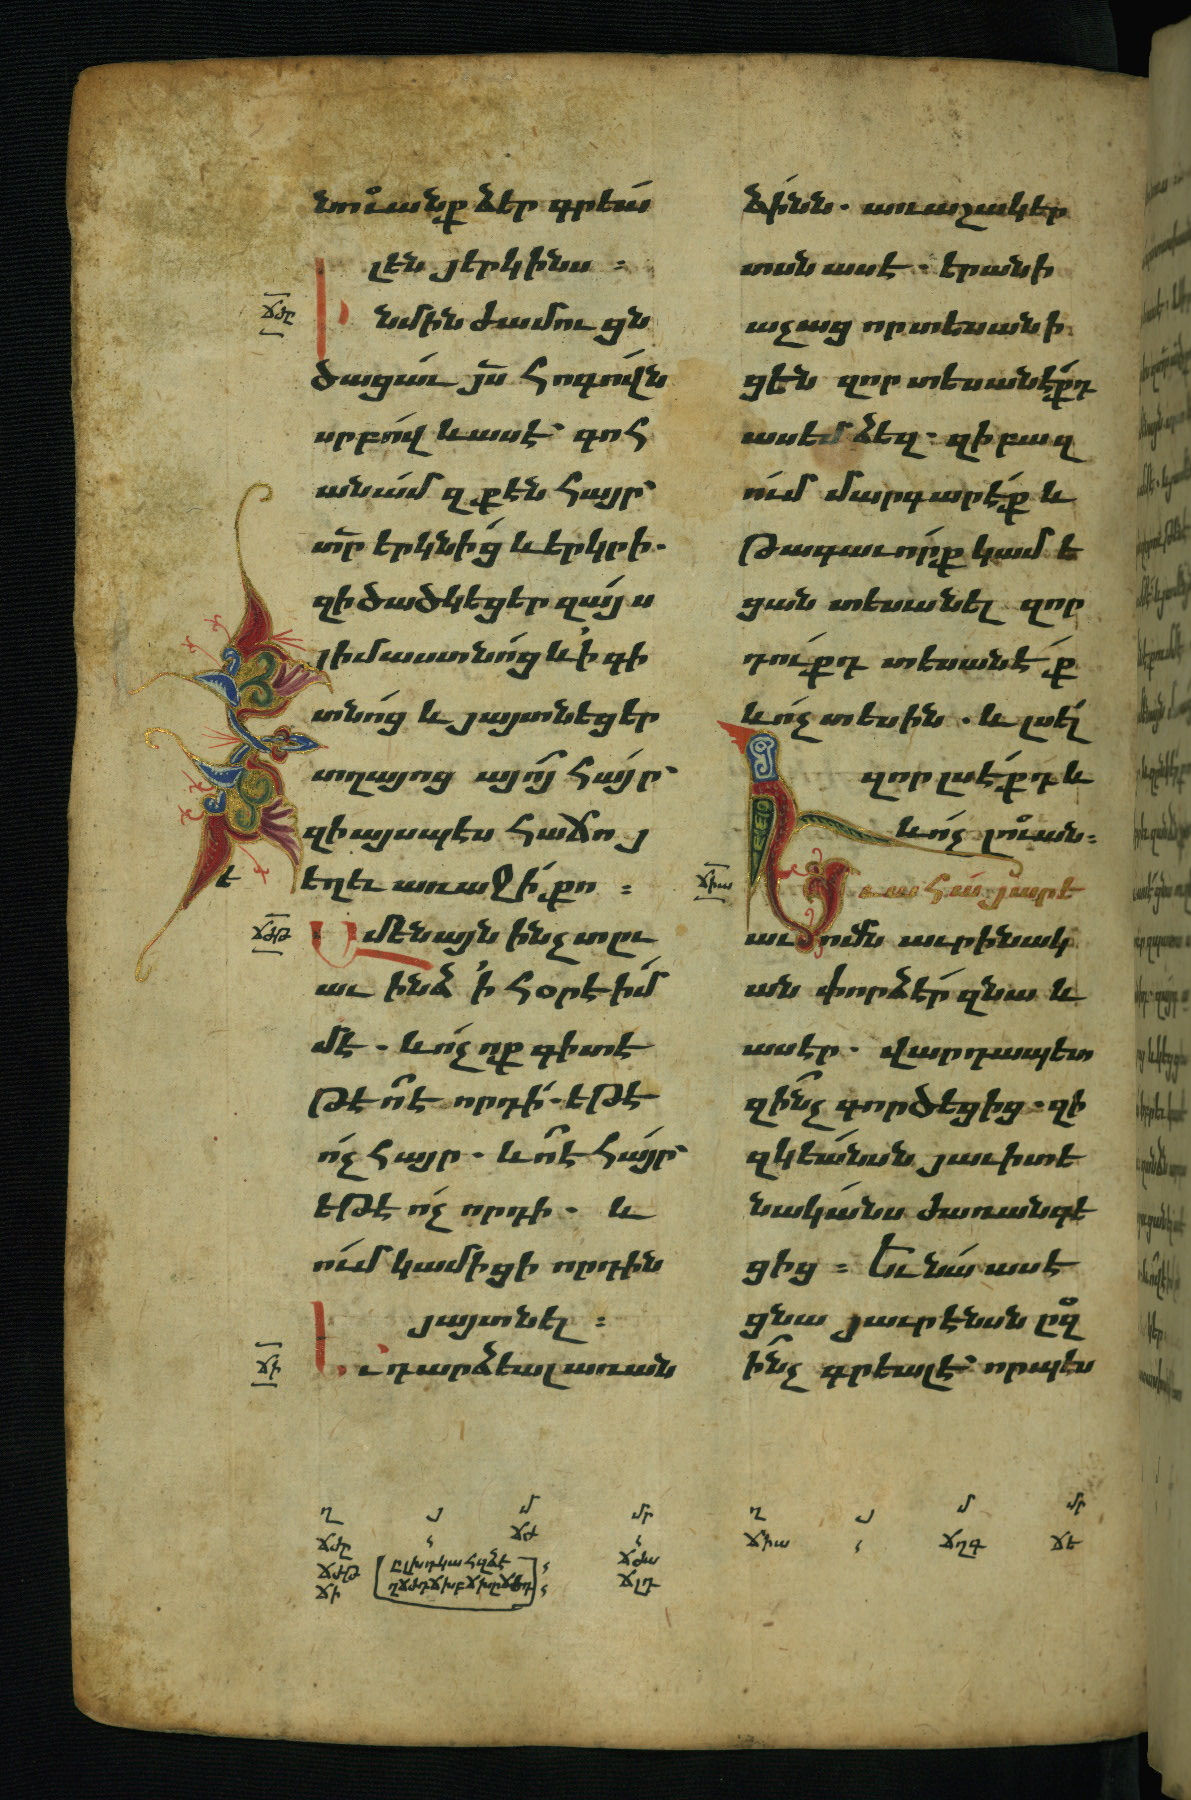 նուանք ձեր գրեա
լեն յերկինս ։
ՃԺԸ
Ի նմին ժամու ցն
ծացաւ յս հոգովն
սրբով և ասէ՝ գոհ
անամ զքէն հայր՝
տր երկնից և երկրի.
զի ծածկեցեր զայս
յիմաստնոց և ՚ի գի
տնոց և յայտնեցեր
տղայոց այո հայր՝
զի այսպէս հաճոյ
եղեւ առաջի քո ։
է
ՃԺԹ
Ամենայն ինչ տըւ
աւ ինձ ՚ի հօրէ իմ
մէ . և ոչ ոք գիտէ
թէ ո է որդի . եթէ
ոչ հայր . և ո է հայր՝
եթէ ոչ որդի . և
ում կամիցի որդին
յայտնել ։
ՃԻ
Եւ դարձեալ առան
ձինն . աւաշակեր
տսն ասէ . երանի
աչաց որ տեսանի
ցեն զոր տեսանէքդ
ասեմ ձեզ . զի բազ
ում մարգարէք և
թագաւորք կամե
ցան տեսանել զոր
դուքդ տեսանէք
և ոչ տեսին . և լսել
զոր լսէքդ և
և ոչ լուան ։
ՃԻԱ
Եւ ահա յարե
աւ ոմն աւրինակ
ան փորձեր զնա և
ասէր . վարդապետ
զինչ գործեցից . զի
զկեանսն յաւիտե
նականս ժառանգե
ցից ։ Եւ նա ասէ
ցնա յաւրէնսն ըզ
ինչ գրեալ է՝ որպէս
Ղ Յ Մ ՄՐ
ՃԺԸ ՃԺ
ՃԺԹ ՃԺԱ
ՃԻ ՃԼԴ
Ղ Յ Մ ՄՐ
ՃԻԱ ՃՂԳ ՃԵ